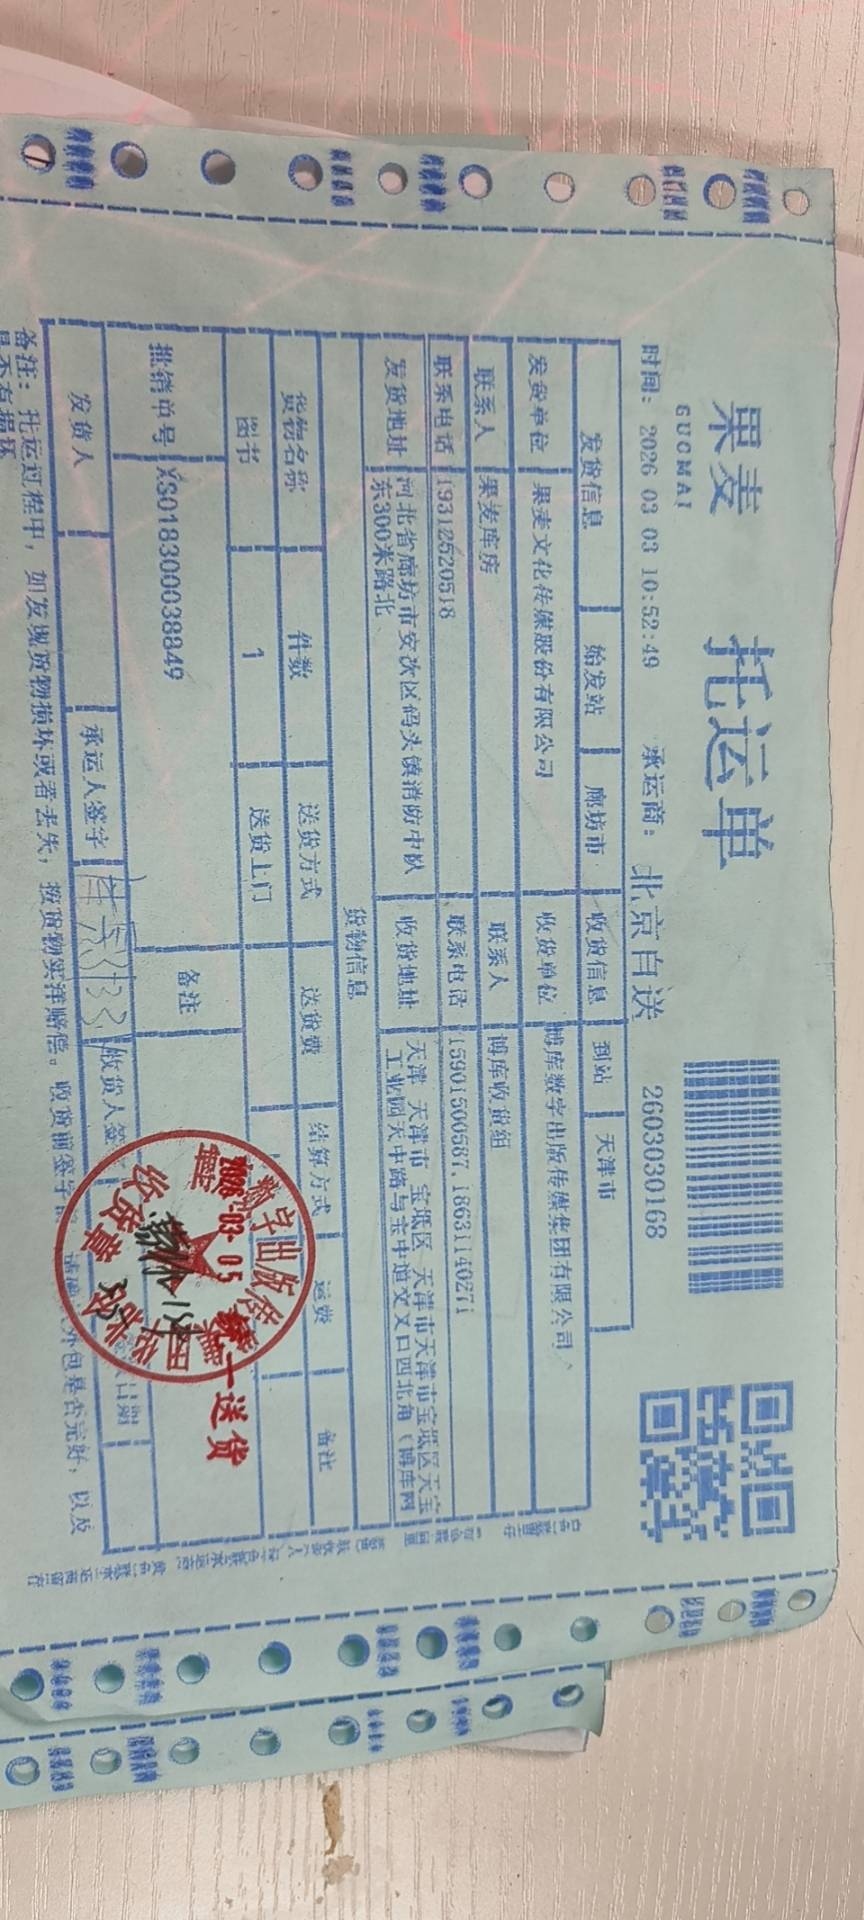 果麦
GUOMAI
托运单
时间: 2026 03 03 10:52:49 承运商: 北京自送 2603030168
发货信息 始发站 廊坊市 收货信息 到站 天津市
发货单位 果麦文化传媒股份有限公司 收货单位 博库数字出版传媒集团有限公司
联系人 果麦库房 联系人 博库收货组
联系电话 19312520518 联系电话 15901500587,18631140271
发货地址 河北省廊坊市安次区码头镇消防中队东300米路北 收货地址 天津 天津市 宝坻区 天津市天津市宝坻区天宝工业园天中路与宝中道交叉口西北角(博库网
货物信息
货物名称 件数 送货方式 送货费 结算方式 运费 备注
图书 1 送货上门
批销单号 XS018300038849 备注
发货人 承运人签字 收货人签 日期
备注: 托运过程中, 如发现货物损坏或者丢失, 按货物实洋赔偿。收货前签字 外包是否完好, 以及
是否有损坏
数字出版传
2026-03-05
收货章
第一送货